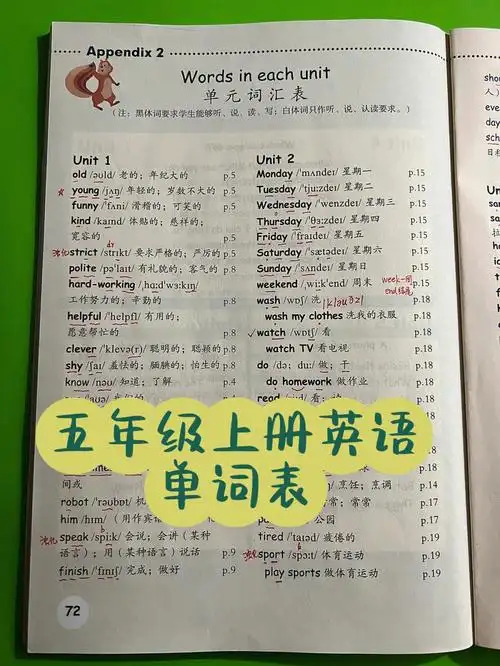 Appendix 2
Words in each unit
单元词汇表
(注：黑体词要求学生能够听、说、读、写；白体词只作听、说、认读要求。)
Unit 1
old /əʊld/ 老的；年纪大的 p.5
young /jʌŋ/ 年轻的；岁数不大的 p.5
funny /ˈfʌni/ 滑稽的；可笑的 p.5
kind /kaɪnd/ 体贴的；慈祥的；
宽容的 p.5
浊化 strict /strɪkt/ 要求严格的；严厉的 p.5
polite /pəˈlaɪt/ 有礼貌的；客气的 p.8
hard-working /ˌhɑːdˈwɜːkɪŋ/
工作努力的；辛勤的 p.8
helpful /ˈhelpfl/ 有用的；
愿意帮忙的 p.8
clever /ˈklevə(r)/ 聪明的；聪颖的 p.8
shy /ʃaɪ/ 羞怯的；腼腆的；怕生的 p.8
know /nəʊ/ 知道；了解 p.4
间或
robot /ˈrəʊbɒt/ 机
him /hɪm/ (用作宾语
浊化 speak /spiːk/ 会说；会讲(某种
语言)；用(某种语言)说话 p.9
finish /ˈfɪnɪʃ/ 完成；做好 p.9
Unit 2
Monday /ˈmʌndeɪ/ 星期一 p.15
Tuesday /ˈtjuːzdeɪ/ 星期二 p.15
Wednesday /ˈwenzdeɪ/ 星期三 p.15
Thursday /ˈθɜːzdeɪ/ 星期四 p.15
Friday /ˈfraɪdeɪ/ 星期五 p.15
Saturday /ˈsætədeɪ/ 星期六 p.15
Sunday /ˈsʌndeɪ/ 星期日 p.15
weekend /ˌwiːkˈend/ 周末 p.15
week-周
end结尾
wash /wɒʃ/ 洗 /kləʊðz/ p.18
wash my clothes 洗我的衣服
watch /wɒtʃ/ 看 p.18
watch TV 看电视 p.18
do /də; du; duː/ 做；干
do homework 做作业 p.18
read /riːd/ 看；
p.18
烹饪；烹调 p.14
常常；常常 p.17
公园 p.17
tired /ˈtaɪəd/ 疲倦的 p.19
浊化 sport /spɔːt/ 体育运动 p.19
play sports 做体育运动 p.19
五年级上册英语
单词表
72